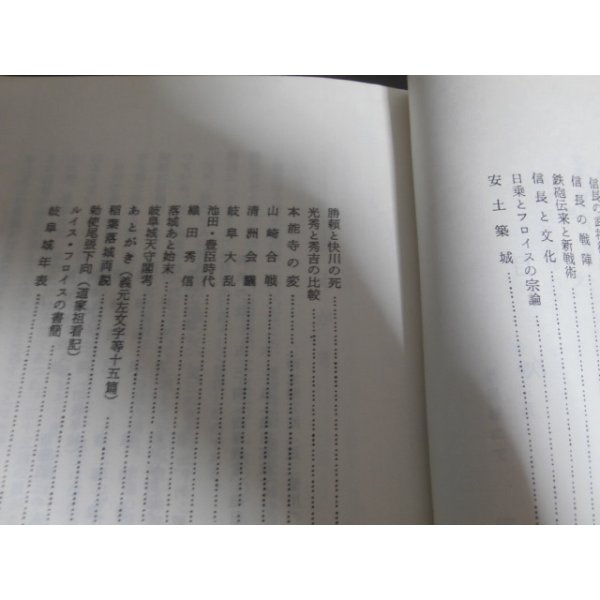 信長の
信長の戦陣
鉄砲伝来と新戦術
信長と文化
日乗とフロイスの宗論
安土築城
勝頼と快川の死
光秀と秀吉の比較
本能寺の変
山崎合戦
清洲会議
岐阜大乱
池田・豊臣時代
織田秀信
落城あと始末
岐阜城天守閣考
あとがき(義元左文字等十五篇)
稲葉落城両説
勅使尾張下向(道家祖看記)
ルイス・フロイスの書簡
岐阜城年表